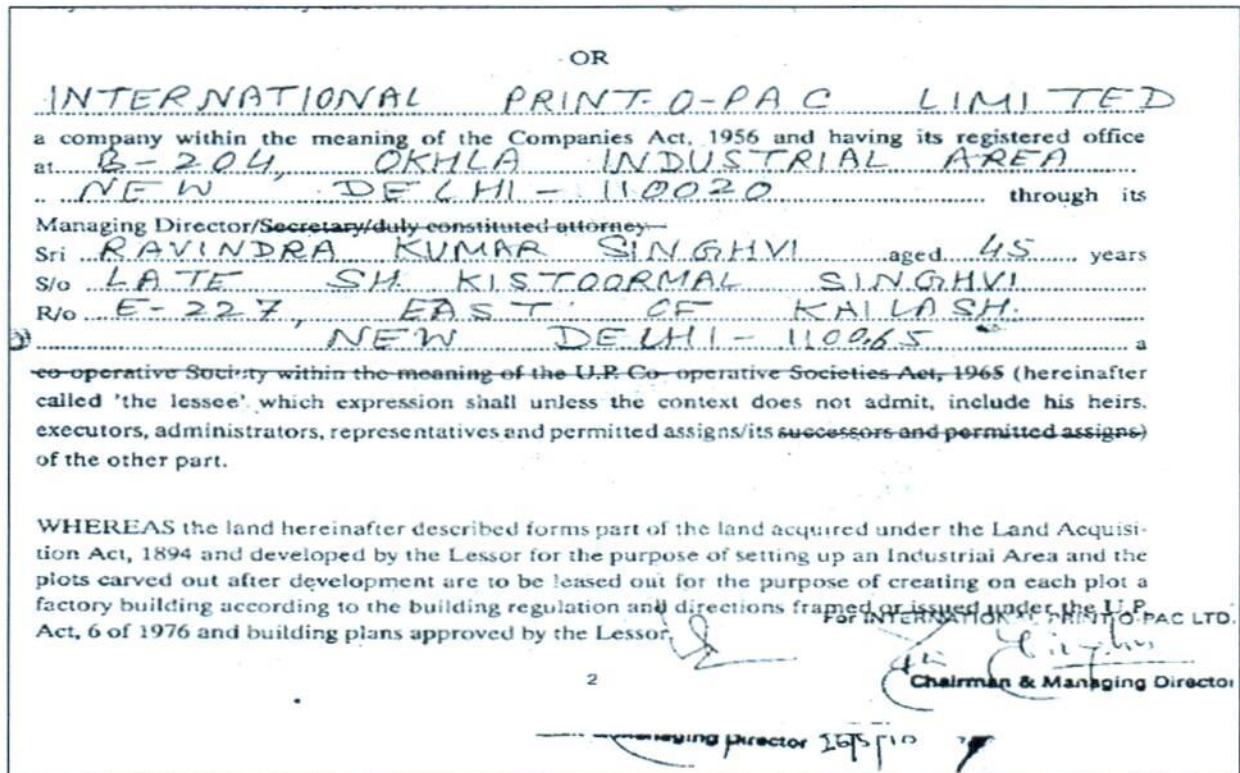 OR
INTERNATIONAL PRINT-O-PAC LIMITED
a company within the meaning of the Companies Act, 1956 and having its registered office
at B-204, OKHLA INDUSTRIAL AREA
NEW DELHI-110020 through its
Managing Director/Secretary/duly constituted attorney
Sri RAVINDRA KUMAR SINGHVI aged 45 years
S/o LATE SH. KISTOORMAL SINGHVI
R/o E-227, EAST OF KAILASH.
NEW DELHI-110065 a
co-operative Society within the meaning of the U.P. Co-operative Societies Act, 1965 (hereinafter
called 'the lessee' which expression shall unless the context does not admit, include his heirs.
executors, administrators, representatives and permitted assigns/its successors and permitted assigns)
of the other part.
WHEREAS the land hereinafter described forms part of the land acquired under the Land Acquisi-
tion Act, 1894 and developed by the Lessor for the purpose of setting up an Industrial Area and the
plots carved out after development are to be leased out for the purpose of creating on each plot a
factory building according to the building regulation and directions framed or issued under the U.P.
Act, 6 of 1976 and building plans approved by the Lessor.
For INTERNATIONAL PRINT-O-PAC LTD.
Chairman & Managing Director
2
Managing Director 26/5/10